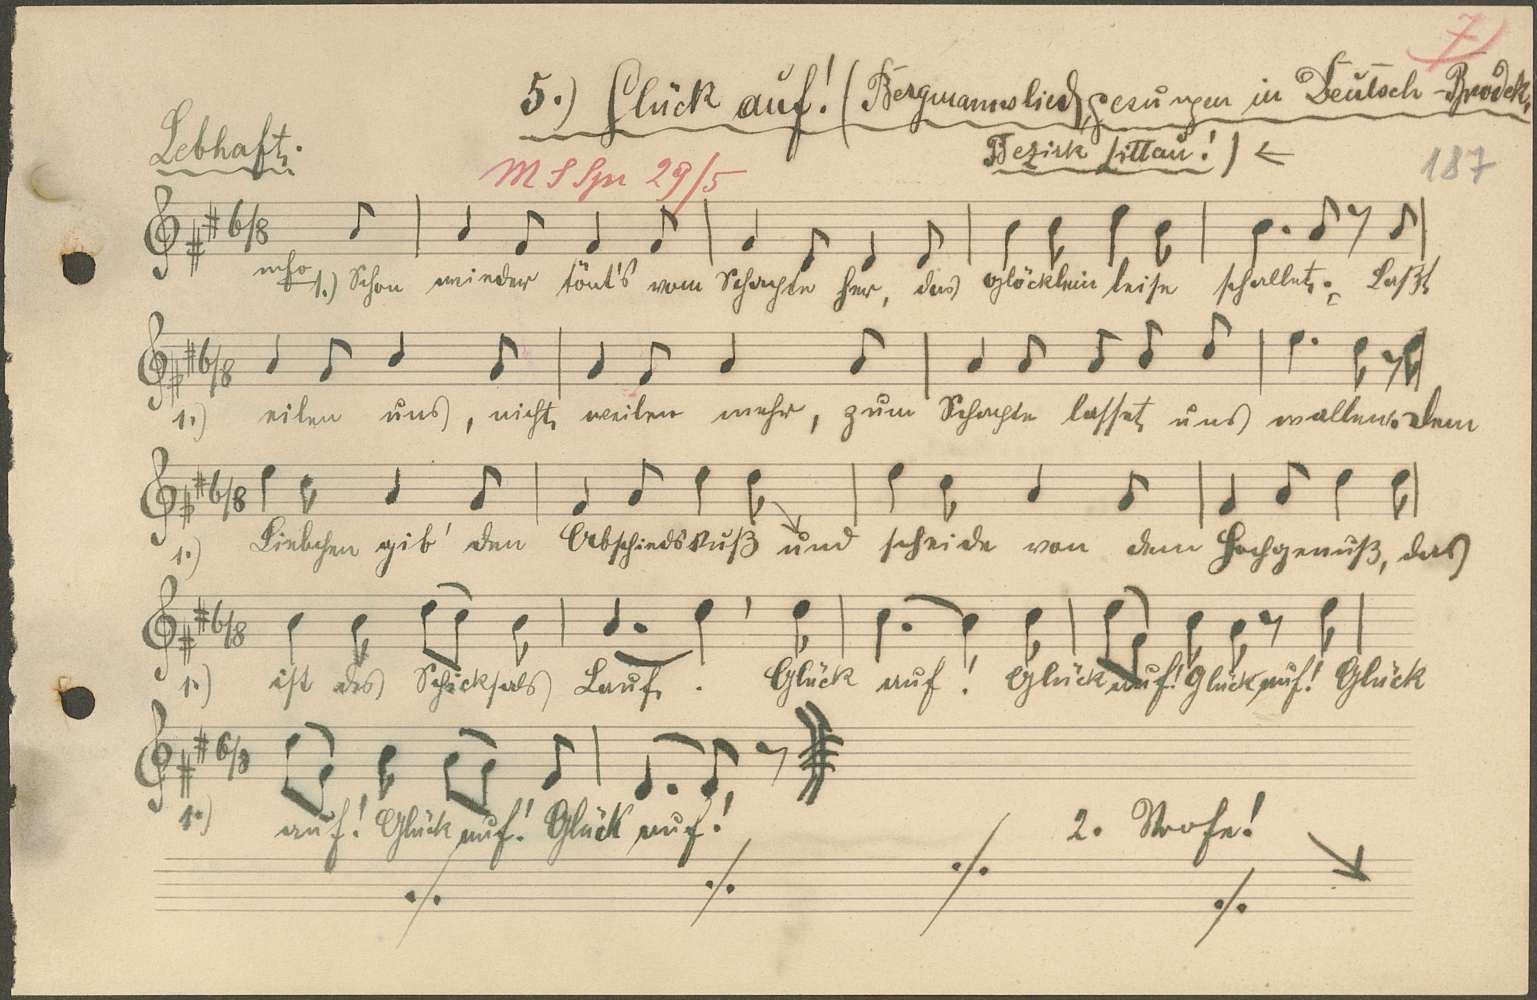 7
5.) Glück auf! (Bergmannslied, gesungen in Deutsch-Brodek,
Bezirk Littau!) ←
Lebhaft.
187
6/8
1.) Schon wieder tönt's vom Schachte her, das Glöcklein leise schallet. Laßt
6/8
1.) eilen uns, nicht weilen mehr, zum Schachte lasset uns wallen. Dem
6/8
1.) Liebchen gib' den Abschiedskuß und scheide von dem Hochgenuß, das
6/8
1.) ist des Schicksals Lauf. Glück auf! Glück auf! Glück auf! Glück
6/8
1.) auf! Glück auf! Glück auf!
2. Strofe!